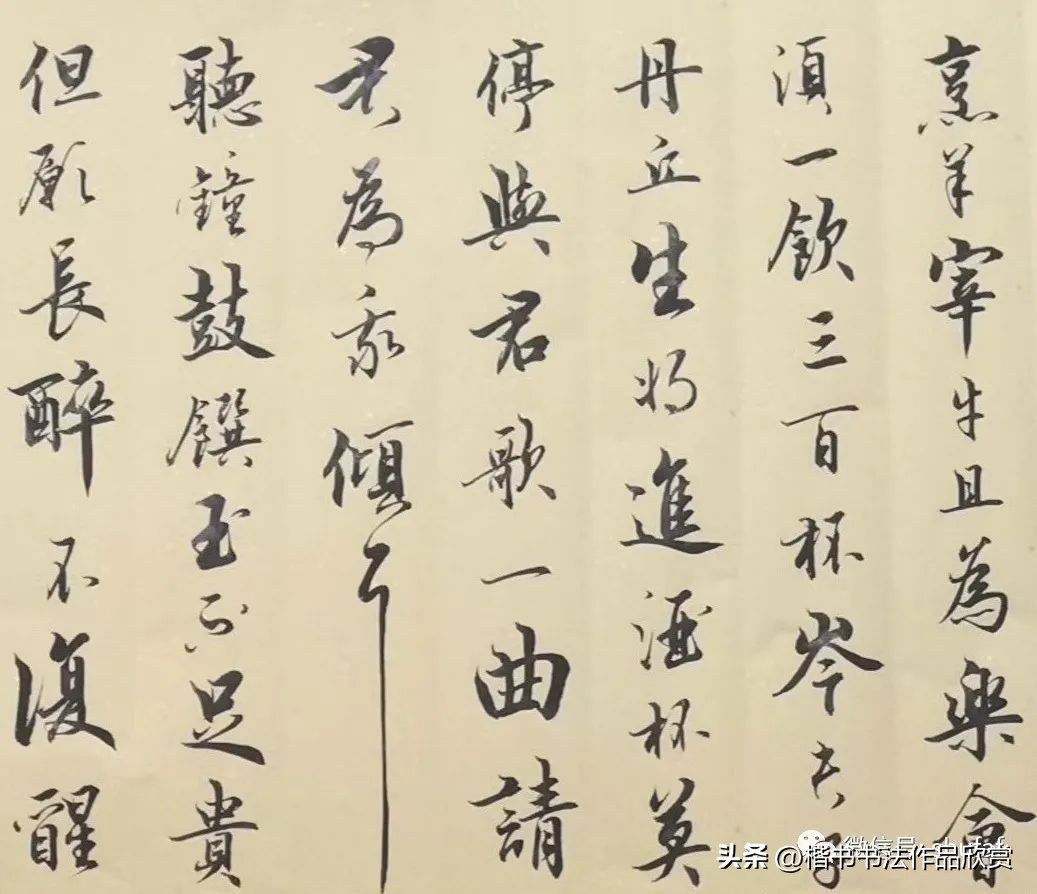 烹羊宰牛且為樂會
須一飲三百杯岑夫子
丹丘生將進酒杯莫
停與君歌一曲請
君為我傾耳
聽鐘鼓饌玉不足貴
但願長醉不復醒
头条 @楷书书法作品欣赏